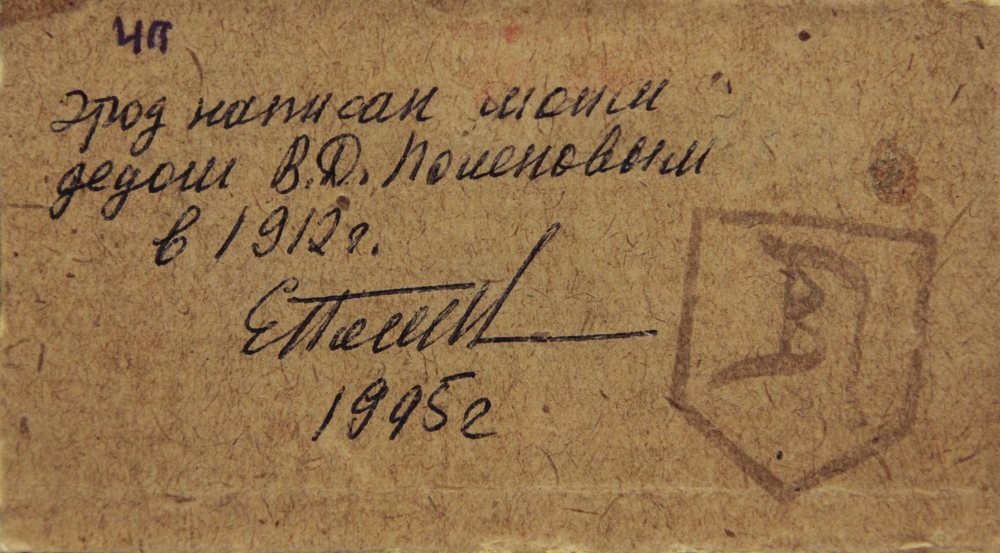 ЧП
Этюд написан моим
дедом В.Д. Поленовым
в 1912 г.
1995 г